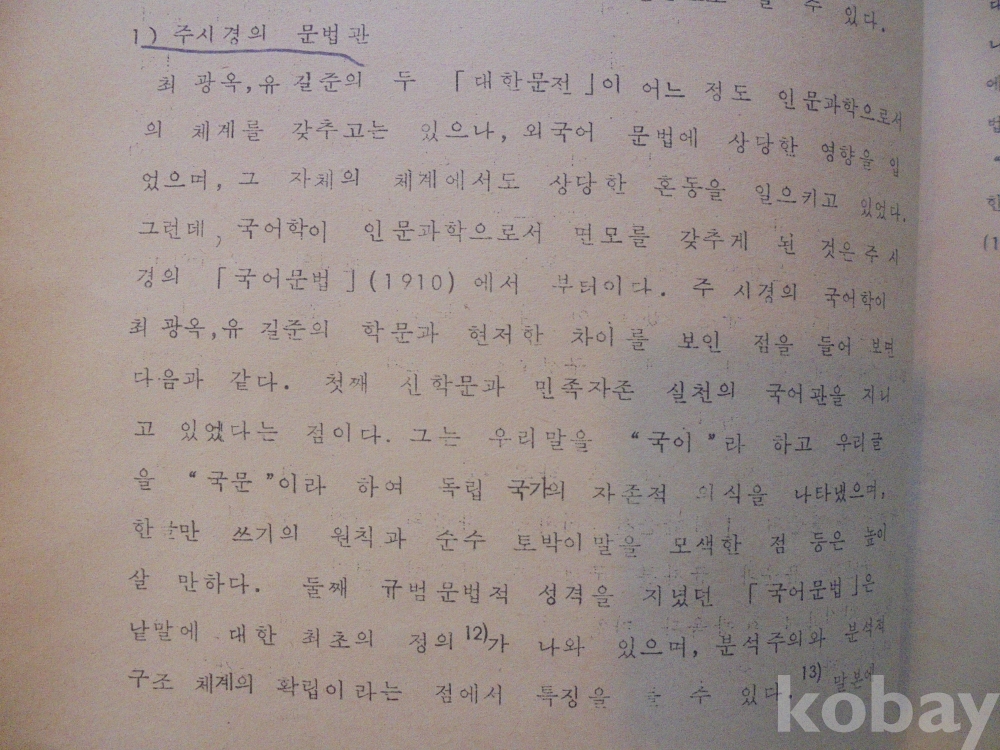 수 있다.
1) 주시경의 문법관
최 광옥,유 길준의 두 「대한문전」이 어느 정도 인문과학으로서
의 체계를 갖추고는 있으나, 외국어 문법에 상당한 영향을 입
었으며, 그 자체의 체계에서도 상당한 혼동을 일으키고 있었다.
그런데, 국어학이 인문과학으로서 면모를 갖추게 된 것은 주 시
경의 「국어문법」(1910)에서 부터이다. 주 시경의 국어학이
최 광옥,유 길준의 학문과 현저한 차이를 보인 점을 들어 보면
다음과 같다. 첫째 신학문과 민족자존 실천의 국어관을 지니
고 있었다는 점이다. 그는 우리말을 “국어”라 하고 우리글
을 “국문”이라 하여 독립 국가의 자존적 의식을 나타냈으며,
한글만 쓰기의 원칙과 순수 토박이말을 모색한 점 등은 높이
살 만하다. 둘째 규범문법적 성격을 지녔던 「국어문법」은
낱말에 대한 최초의 정의12)가 나와 있으며, 분석주의와 분석적
구조 체계의 확립이라는 점에서 특징을 수 있다.13) 말본에
kobay